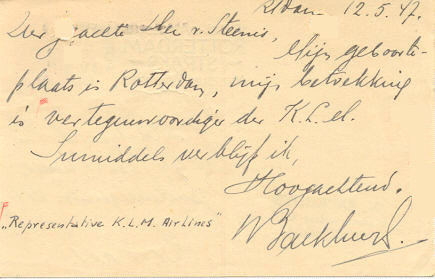 R'dam 12.5.47.
Zeer geachte Heer v. Steenis,
Mijn geboorte-
plaats is Rotterdam, mijn betrekking
is vertegenwoordiger der K.L.M.
Inmiddels verblijf ik,
Hoogachtend.
"Representative K.L.M. Air Lines"